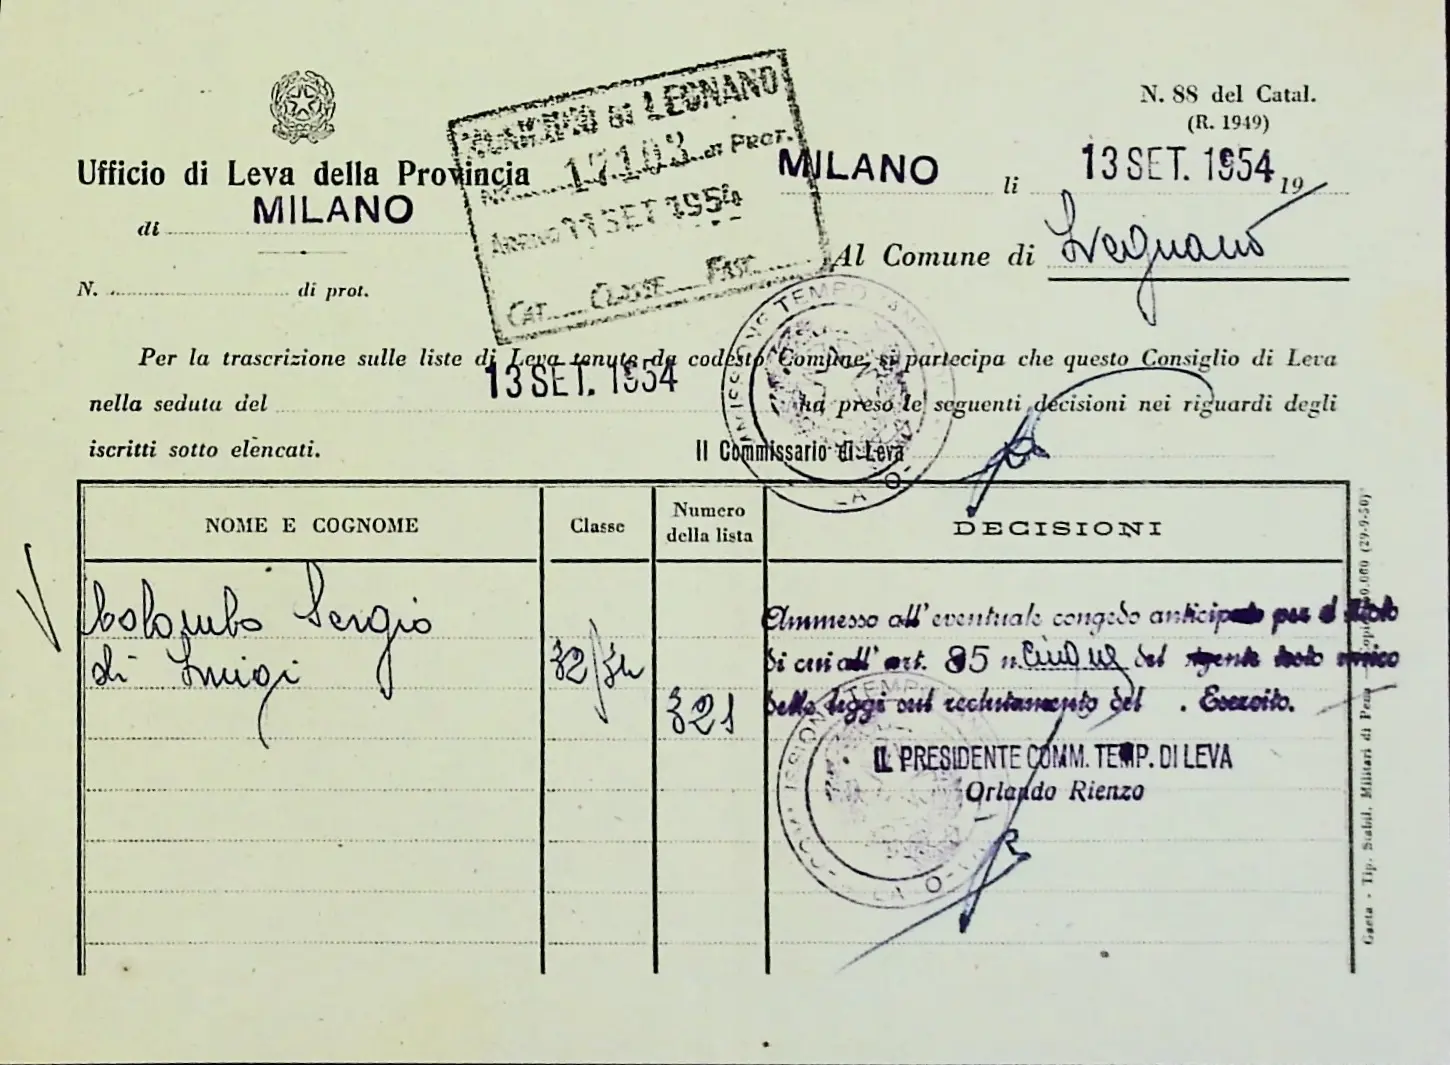 N. 88 del Catal.
(R. 1949)
MUNICIPIO DI LEGNANO
N. 17103 di Prot.
Arrivo 11 SET 1954
Cat. Classe Fasc.
Ufficio di Leva della Provincia
di MILANO
N. di prot.
MILANO li 13 SET. 1954 19
Al Comune di Legnano
Per la trascrizione sulle liste di Leva tenute da codesto Comune, si partecipa che questo Consiglio di Leva
nella seduta del 13 SET. 1954 ha preso le seguenti decisioni nei riguardi degli
iscritti sotto elencati.
Il Commissario di Leva
NOME E COGNOME Classe Numero della lista DECISIONI
Colombo Sergio
di Luigi
32/34
321
Ammesso all'eventuale congedo anticipato per il titolo
di cui all'art. 85 n. cinque del vigente testo unico
delle leggi sul reclutamento del . Esercito.
IL PRESIDENTE COMM. TEMP. DI LEVA
Orlando Rienzo
Gaeta - Tip. Stabil. Militari di Pena (29-9-50)